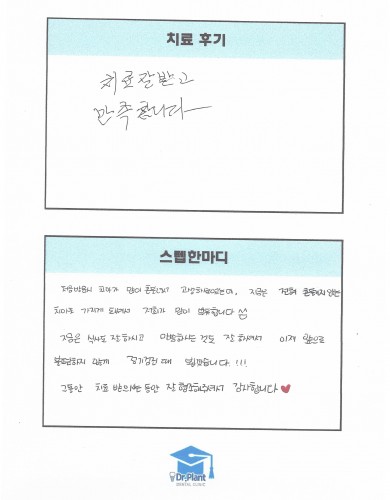 치료 후기
치료잘받고
만족합니다
스텝한마디
처음방문시 치아가 많이 흔들려서 고생하셨었는데, 지금은 전혀 흔들리지 않는
치아를 가지게 되셔서 저희가 많이 뿌듯합니다
지금은 식사도 잘하시고 말씀하시는 것도 잘 하셔서 이제 앞으로
불편하지 않게 정기검진 때 뵙겠습니다. !!!
그동안 치료 받으시는 동안 잘 협조해주셔서 감사합니다
Dr.Plant
DENTAL CLINIC